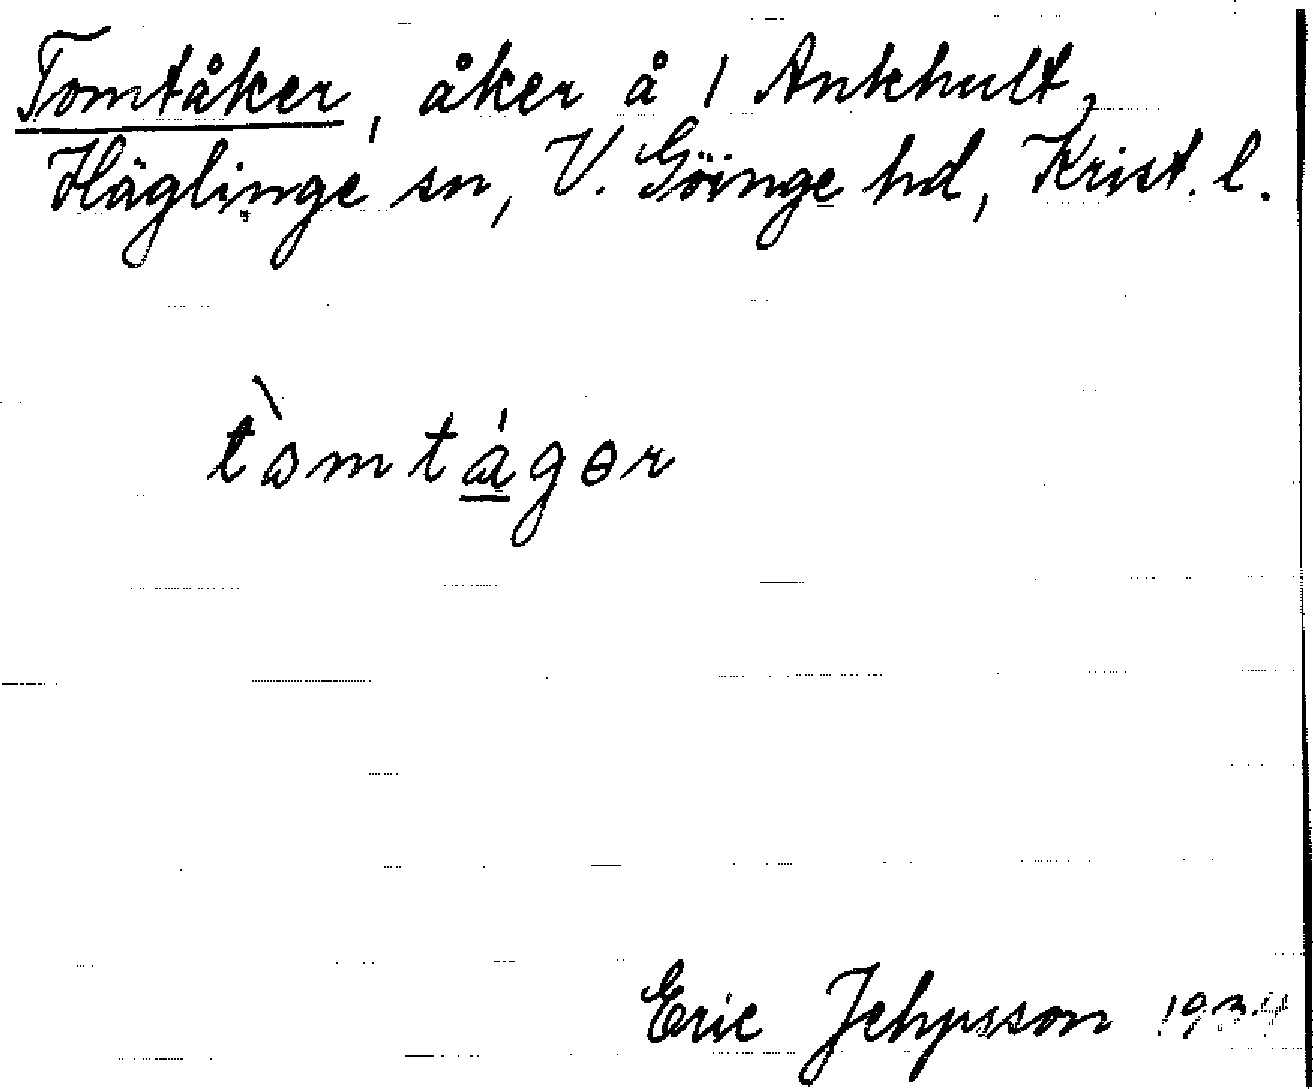 Tomtåker, åker å 1 Ankhult,
Häglinge sn, V. Göinge hd, Krist. l.
tòmtågər
Eric Jehpsson 1934